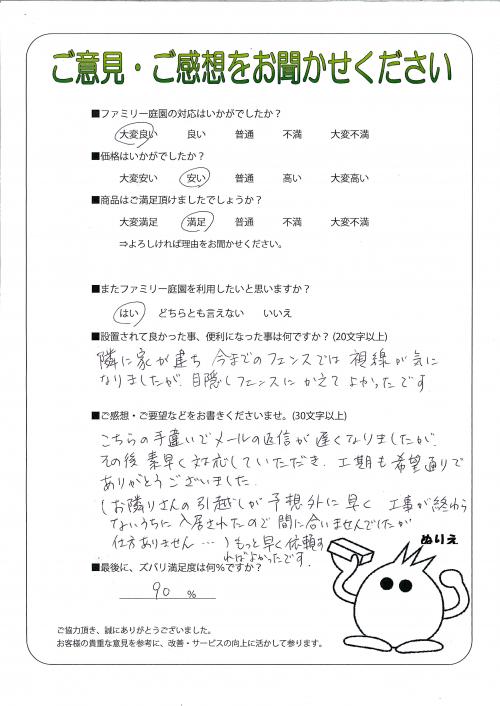 ご意見・ご感想をお聞かせください
■ファミリー庭園の対応はいかがでしたか？
大変良い 良い 普通 不満 大変不満
■価格はいかがでしたか？
大変安い 安い 普通 高い 大変高い
■商品はご満足頂けましたでしょうか？
大変満足 満足 普通 不満 大変不満
⇒よろしければ理由をお聞かせください。
■またファミリー庭園を利用したいと思いますか？
はい どちらとも言えない いいえ
■設置されて良かった事、便利になった事は何ですか？(20文字以上)
隣に家が建ち 今までのフェンスでは 視線が気に
なりましたが、目隠しフェンスに かえて よかったです
■ご感想・ご要望などをお書きくださいませ。(30文字以上)
こちらの手違いでメールの返信が遅くなりましたが、
その後 素早く対応していただき、工期も希望通りで
ありがとうございました。
(お隣りさんの引越しが予想外に早く 工事が終わら
ないうちに入居されたので間に合いませんでしたが
仕方ありません…)もっと早く依頼す
ればよかったです.
ぬりえ
■最後に、ズバリ満足度は何%ですか？
90 %
ご協力頂き、誠にありがとうございました。
お客様の貴重な意見を参考に、改善・サービスの向上に活かして参ります。